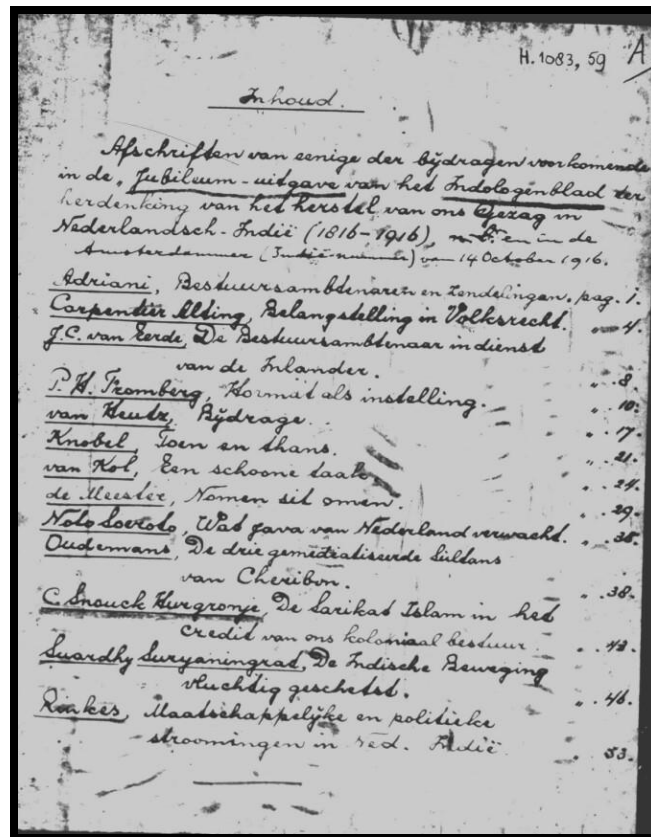 H.1083, 59 A
Inhoud.
Afschriften van eenige der bijdragen voorkomende
in de „Jubileum-uitgave van het Indologenblad ter
herdenking van het herstel van ons Gezag in
Nederlandsch-Indië (1816-1916), en in de
Amsterdammer (Indië-nummer) van 14 October 1916.
Adriani, Bestuursambtenaren en Zendelingen. pag. 1.
Carpentier Alting, Belangstelling in Volksrecht. „ 4.
J.C. van Eerde, De Bestuursambtenaar in dienst
van de Inlander. „ 8.
P. H. Fromberg, Hormat als instelling. „ 10.
van Heutz, Bijdrage. „ 17.
Knobel, Toen en thans. „ 21.
van Kol, Een schoone taak. „ 24.
de Meester, Nomen sit omen. „ 29.
Noto Soeroto, Wat Java van Nederland verwacht. „ 35.
Oudemans, De drie gemediatiseerde Sultans
van Cheribon. „ 38.
C. Snouck Hurgronje, De Sarikat Islam in het
credit van ons koloniaal bestuur „ 43.
Suardhy Suryaningrat, De Indische Beweging
vluchtig geschetst. „ 46.
Rinkes, Maatschappelijke en politieke
stroomingen in Ned. Indië „ 53.